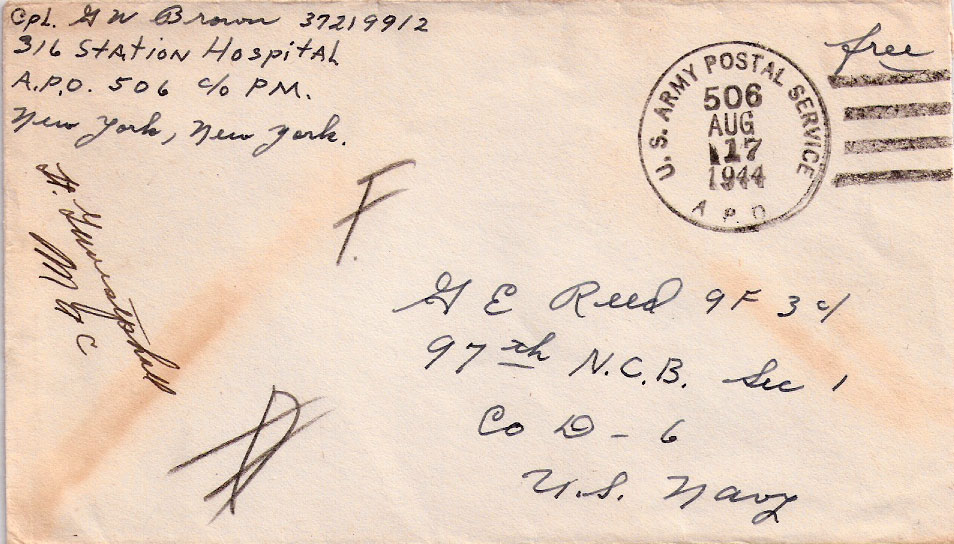 Cpl. G W Brown 37219912
316 Station Hospital
A.P.O. 506 c/o PM.
New York, New York.
free
U. S. ARMY POSTAL SERVICE
506
AUG
17
1944
A P.O
F.
G E Reed 9F 3c/
97th N.C.B. Sec 1
Co D - 6
U.S. Navy